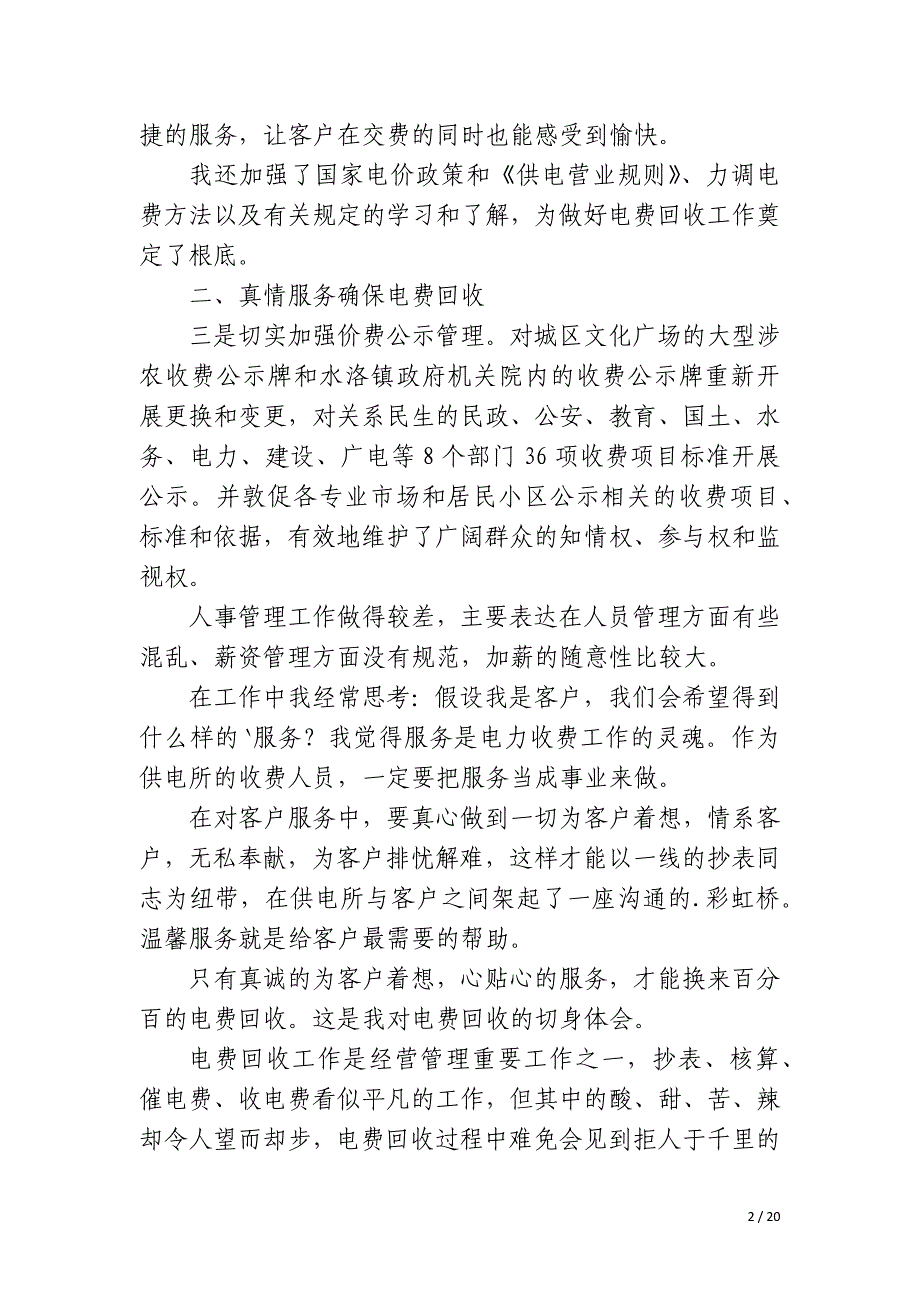 捷的服务，让客户在交费的同时也能感受到愉快。
我还加强了国家电价政策和《供电营业规则》、力调电
费方法以及有关规定的学习和了解，为做好电费回收工作奠
定了根底。
二、真情服务确保电费回收
三是切实加强价费公示管理。对城区文化广场的大型涉
农收费公示牌和水洛镇政府机关院内的收费公示牌重新开
展更换和变更，对关系民生的民政、公安、教育、国土、水
务、电力、建设、广电等 8 个部门 36 项收费项目标准开展
公示。并敦促各专业市场和居民小区公示相关的收费项目、
标准和依据，有效地维护了广阔群众的知情权、参与权和监
视权。
人事管理工作做得较差，主要表达在人员管理方面有些
混乱、薪资管理方面没有规范，加薪的随意性比较大。
在工作中我经常思考：假设我是客户，我们会希望得到
什么样的‵服务？我觉得服务是电力收费工作的灵魂。作为
供电所的收费人员，一定要把服务当成事业来做。
在对客户服务中，要真心做到一切为客户着想，情系客
户，无私奉献，为客户排忧解难，这样才能以一线的抄表同
志为纽带，在供电所与客户之间架起了一座沟通的.彩虹桥。
温馨服务就是给客户最需要的帮助。
只有真诚的为客户着想，心贴心的服务，才能换来百分
百的电费回收。这是我对电费回收的切身体会。
电费回收工作是经营管理重要工作之一，抄表、核算、
催电费、收电费看似平凡的工作，但其中的酸、甜、苦、辣
却令人望而却步，电费回收过程中难免会见到拒人于千里的
2 / 20